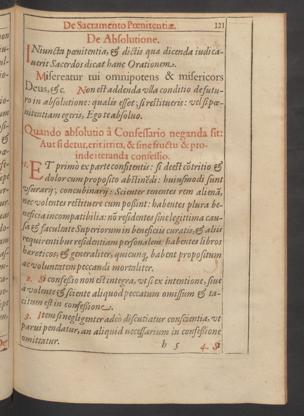 De Sacramento Pœnitentiæ. 121
De Absolutione.
INiuncta pœnitentia, & dictis quæ dicenda iudica-
uerit Sacerdos dicat hanc Orationem.
Misereatur tui omnipotens & misericors
Deus, &c. Non est addenda vlla conditio de futu-
ro in absolutione: qualis esset, si restituerit: vel si pœ-
nitentiam egeris, Ego te absoluo.
Quando absolutio à Confessario neganda sit:
Aut si detur, erit irrita, & sine fructu & pro-
inde iteranda confessio.
1. ET primò ex parte confitentis: si deest cōtritio &
dolor cum proposito abstinēdi: huiusmodi sunt
vsurarij, concubinarij: Scienter tenentes rem alienā,
nec volentes restituere cum possint: habentes plura be-
neficia incompatibilia: nō residentes sine legitima cau-
sa & facultate Superiorum in beneficiis curatis, & aliis
requirentibus residentiam personalem: habentes libros
hæreticos, & generaliter, quicunq, habent propositum
ac voluntatem peccandi mortaliter.
2. Si confessio non est integra, vt si ex intentione, siue
a volente & sciente aliquod peccatum omissum & ta-
citum est in confessione.
3. Item si negligenter adeò discutiatur conscientia, vt
parui pendatur, an aliquid necessarium in confessione
omittatur.
h 5 4. Si